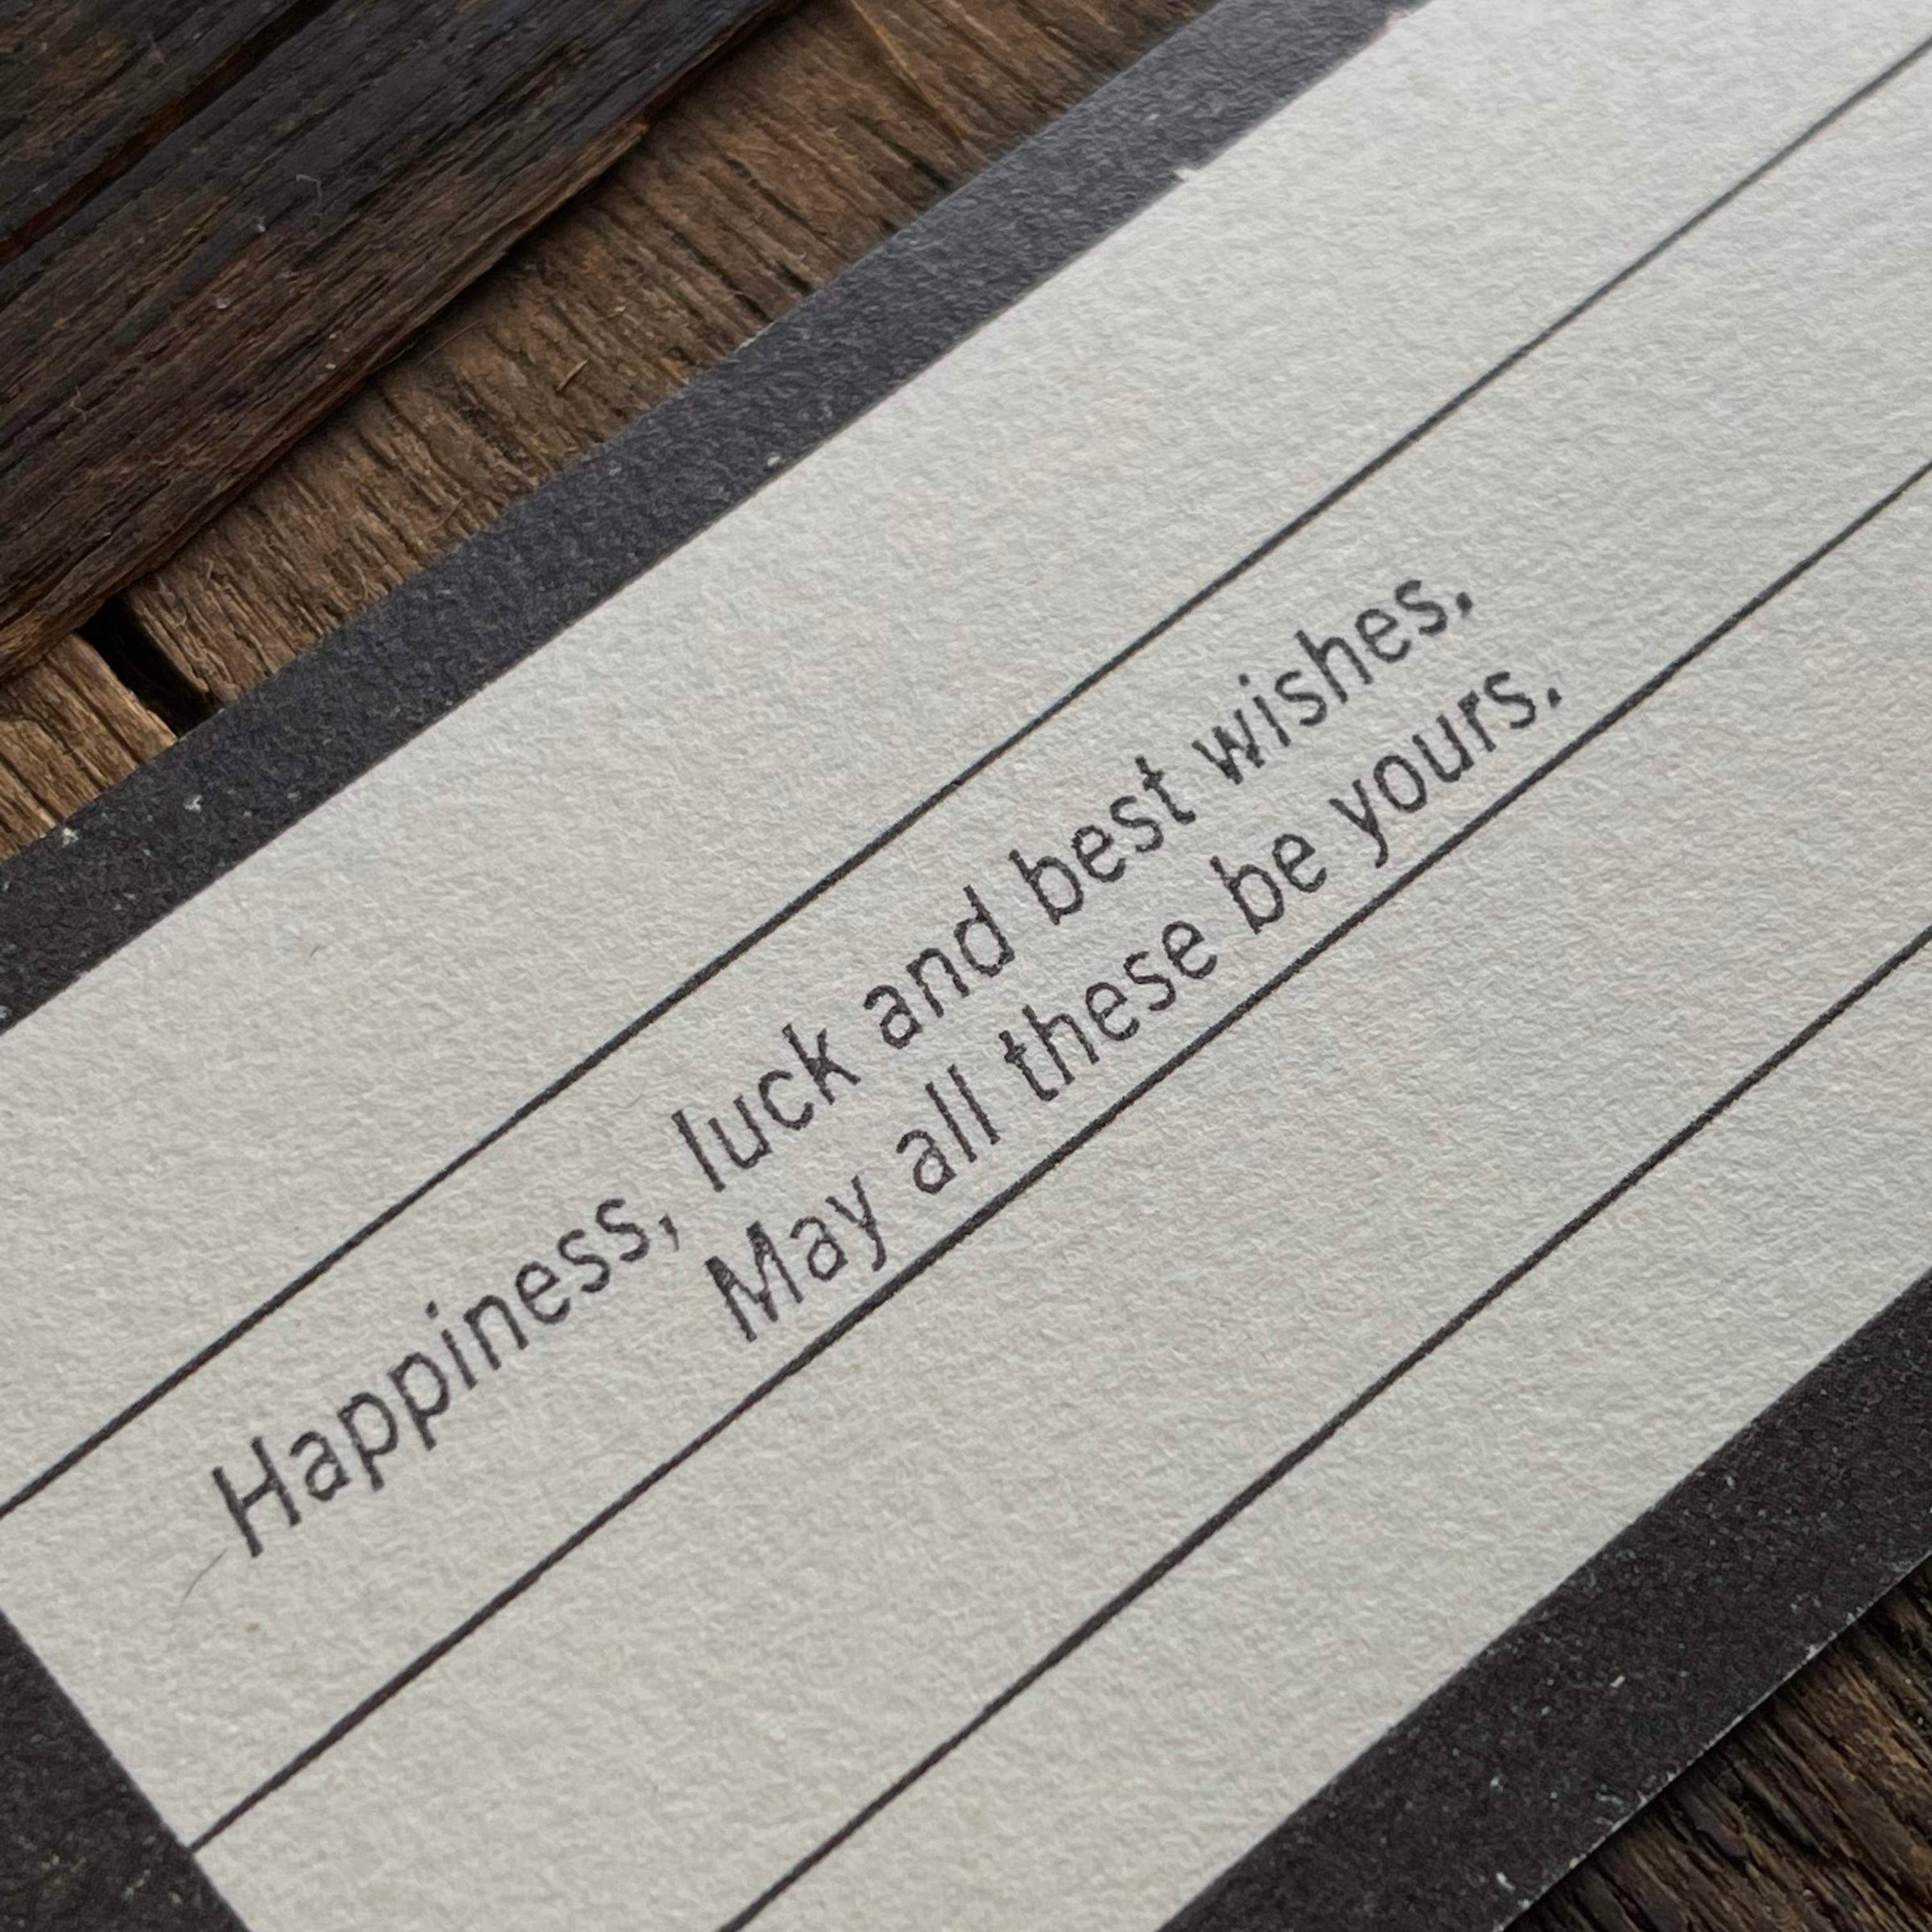 Happiness, luck and best wishes.
May all these be yours.